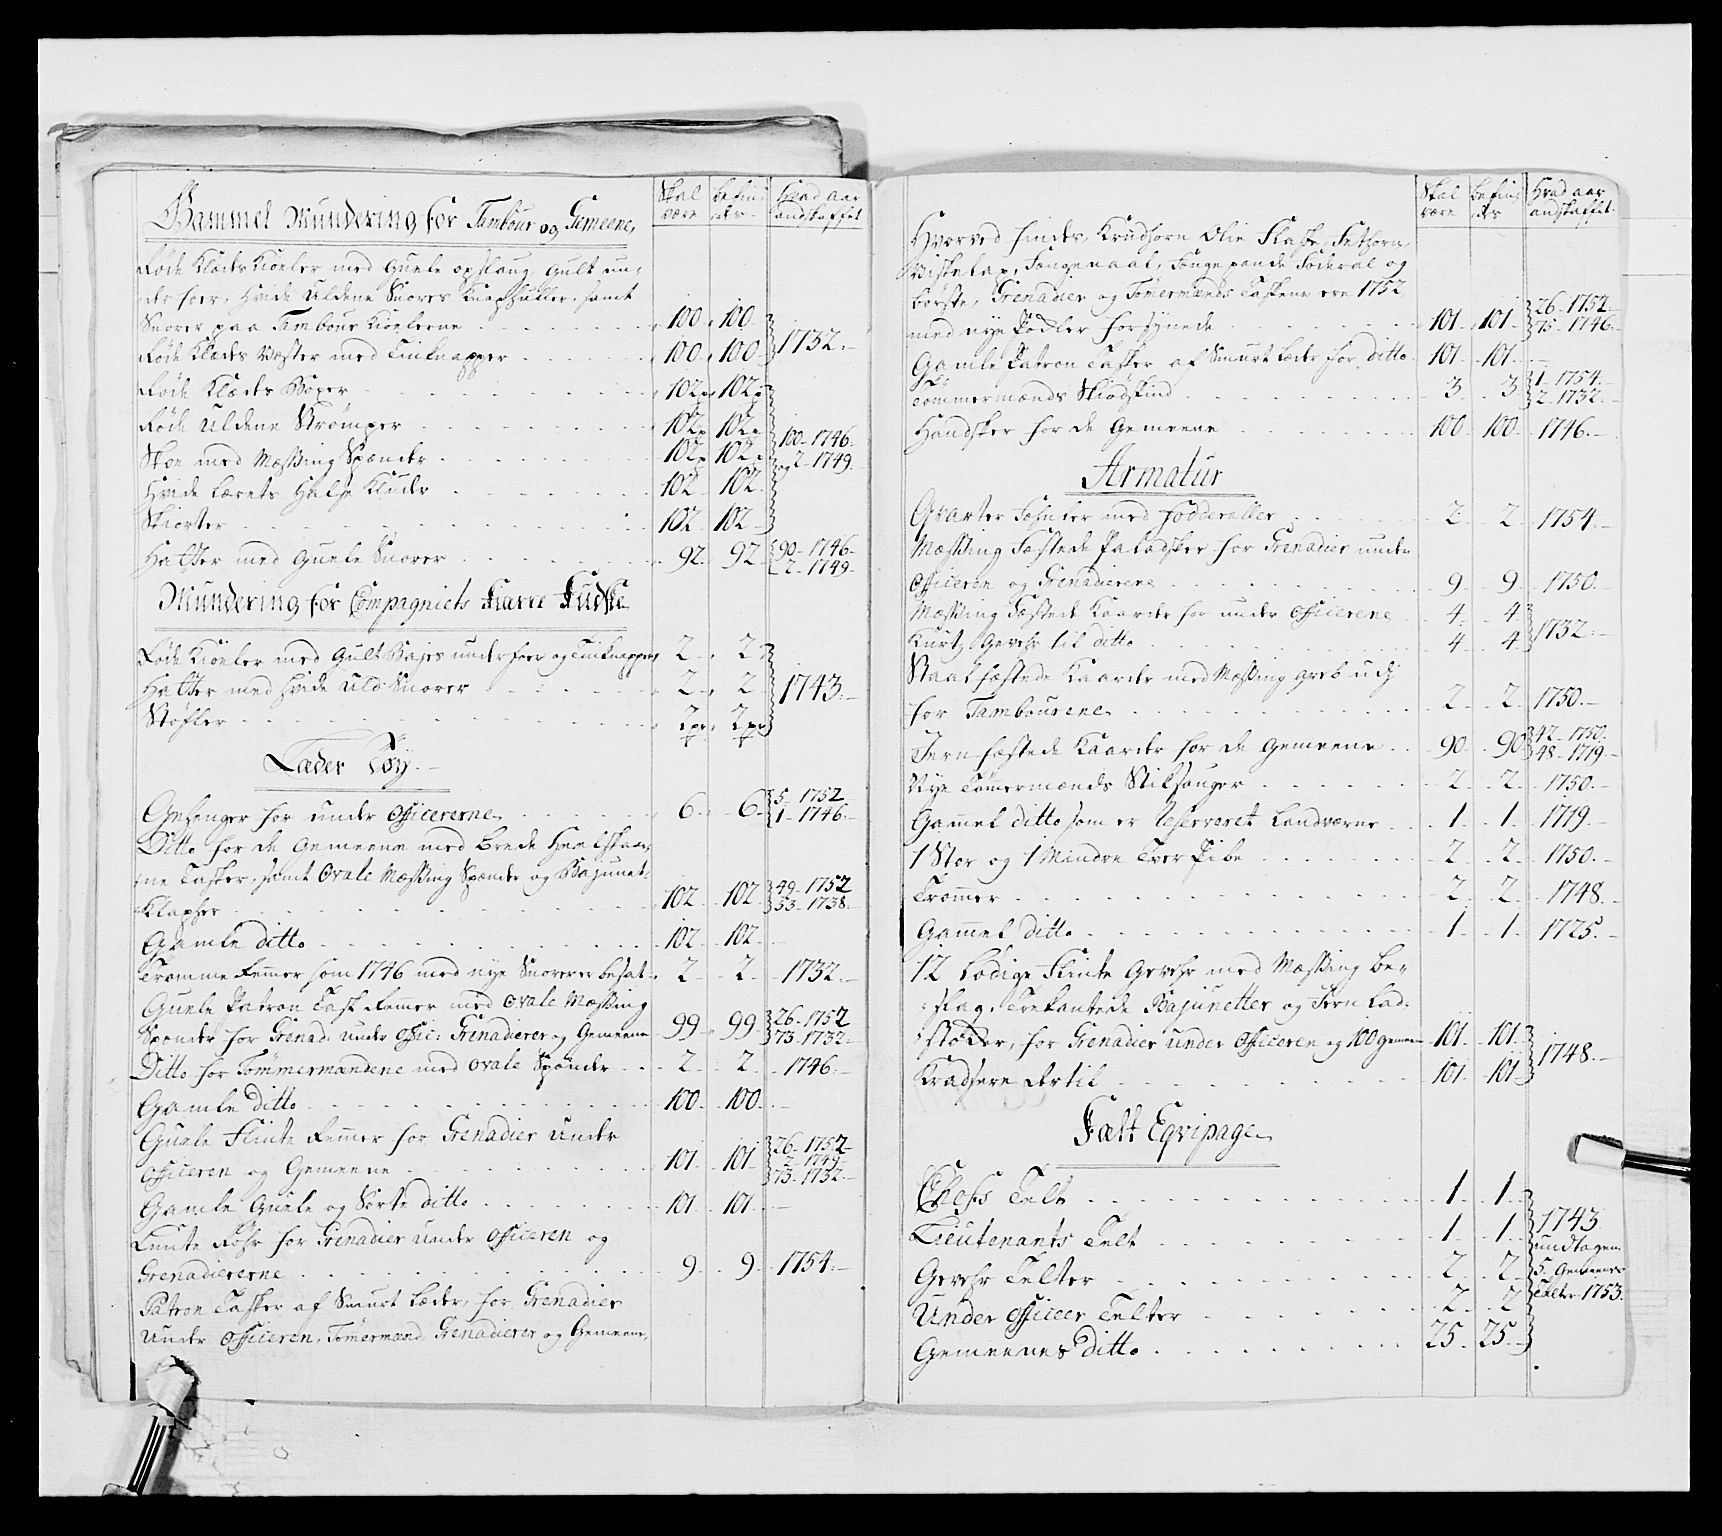 Skal være | befin: des | Hvad aar andskaffet
Gammel Mundering for Tambour og Gemeene,
Røde Klædes Kioeler med Guele opslaug, Gult un:
der foer, Hvide Uldene Snorer Knaphuller, samt
Snorer paa Tambour Kioelerne . . . 100 100
Røde Klædes Væster med Tinknapper . . . 100 100 1732.
Røde Klædes Boxer . . . 102 p 102 p
Røde Uldene Strømper . . . 102 p 102 p
Skoe med Messing Spænder . . . 102 p 102 p 100 - 1746. og 2 - 1749.
Hvide Lærets Halse Kluder . . . 102 102
Skiorter . . . 102 102
Hatter med Guele Snorer . . . 92 92 90 - 1746 2 - 1749
Mundering for Compagniets Karre Kudske
Røde Kioeler med Gult Bajes underfoer og Tinknapper 2 2
Hatter med hvide Uld Snorer . . . 2 2 1743.
Støfler . . . 2 pr 2 pr
Læder Tøy.
Gehenger for under Officererne . . . 6 6 5 - 1752 1 - 1746.
Ditto for de Gemeene med brede
ne Tasker, samt Ovale Messing Spænder og Bajunet:
Klapher . . . 102 102 49 - 1752 53 - 1738.
Gamle ditto . . . 102 102
Tromme Remer som 1746 med nye Snorer er besat 2 2 1732
Guele Patron Task Remer med ovale Messing
Spænder for Grenad: under Offic: Grenadierer og Gemeene 99 99 26 - 1752 73 - 1732
Ditto for Tømmermændene med ovale Spænder . . 2 2 1746.
Gamle ditto . . . 100 100
Guele Flinte Remer for Grenadier under
Officeren og Gemeene . . . 101 101 26 - 1752 2 - 1749 73 - 1732.
Gamle Guele og Sorte ditto . . . 101 101
Lunte Rohr for Grenadier Under Officeren og
Grenadiererne . . . 9 9 1754.
Patron Tasker af Smurt Læder, for Grenadier
Under Officeren, Tømermænd Grenadierer og Gemeene,
Skal være | befin: des | Hvad aar andskaffet
Hvorved findes, Krudhorn Olie Flaske, Fethorn
Viskelap, Fængenaal, Fængepande Foderal og
børste, Grenadier og Tømermænds Taskene ere 1752
med nye Podler forsynede . . . 101 101 26 - 1752 75 - 1746
Gamle Patron Tasker af Smurt Læder for ditto 101 101
Tømmermænds Skiødskind . . . 3 3 1 - 1754 2 - 1732
Handsker for de Gemeene . . . 100 100 1746.
Armatur
Qvarter Tohner med Fodderaller . . . 2 2 1754.
Messing Fæstede Paladsker for Grenadier under
Officeren og Grenadiererne . . . 9 9 1750.
Messing Fæstede Kaarder for under Officererne . 4 4
Kurtz Gevehr til ditto . . . 4 4 1732.
Staalfæstede Kaarder med Messing Greb udj
for Tambourene . . . 2 2 1750.
Jern fæstede Kaarder for de Gemeene . . 90 90 42 - 1750 48 - 1719
Nye Tømermænds Stiksauger . . . 2 2 1750.
Gammel ditto som er reserveret Landværne . . 1 1 1719.
1 Stor og 1 Mindre Tver Pibe . . . 2 2 1750.
Trommer . . . 2 2 1748.
Gammel ditto . . . 1 1 1725.
12 Lodige Flinte Gevehr med Messing be:
slag, Trekantede Bajunetter og Jern Lad:
støker, for Grenadier Under Officeren og 100 gemeene 101 101
Kradsere dertil . . . 101 101 1748.
Fælt Eqvipage
Chefs Telt . . . 1 1
Lieutenants Telt . . . 1 1 1743 undtagen
Gevehr Telter . . . 2 2 5 Gemeenes
Under Officer Telter . . . 2 2 Telter 1753.
Gemeenes ditto . . . 25 25